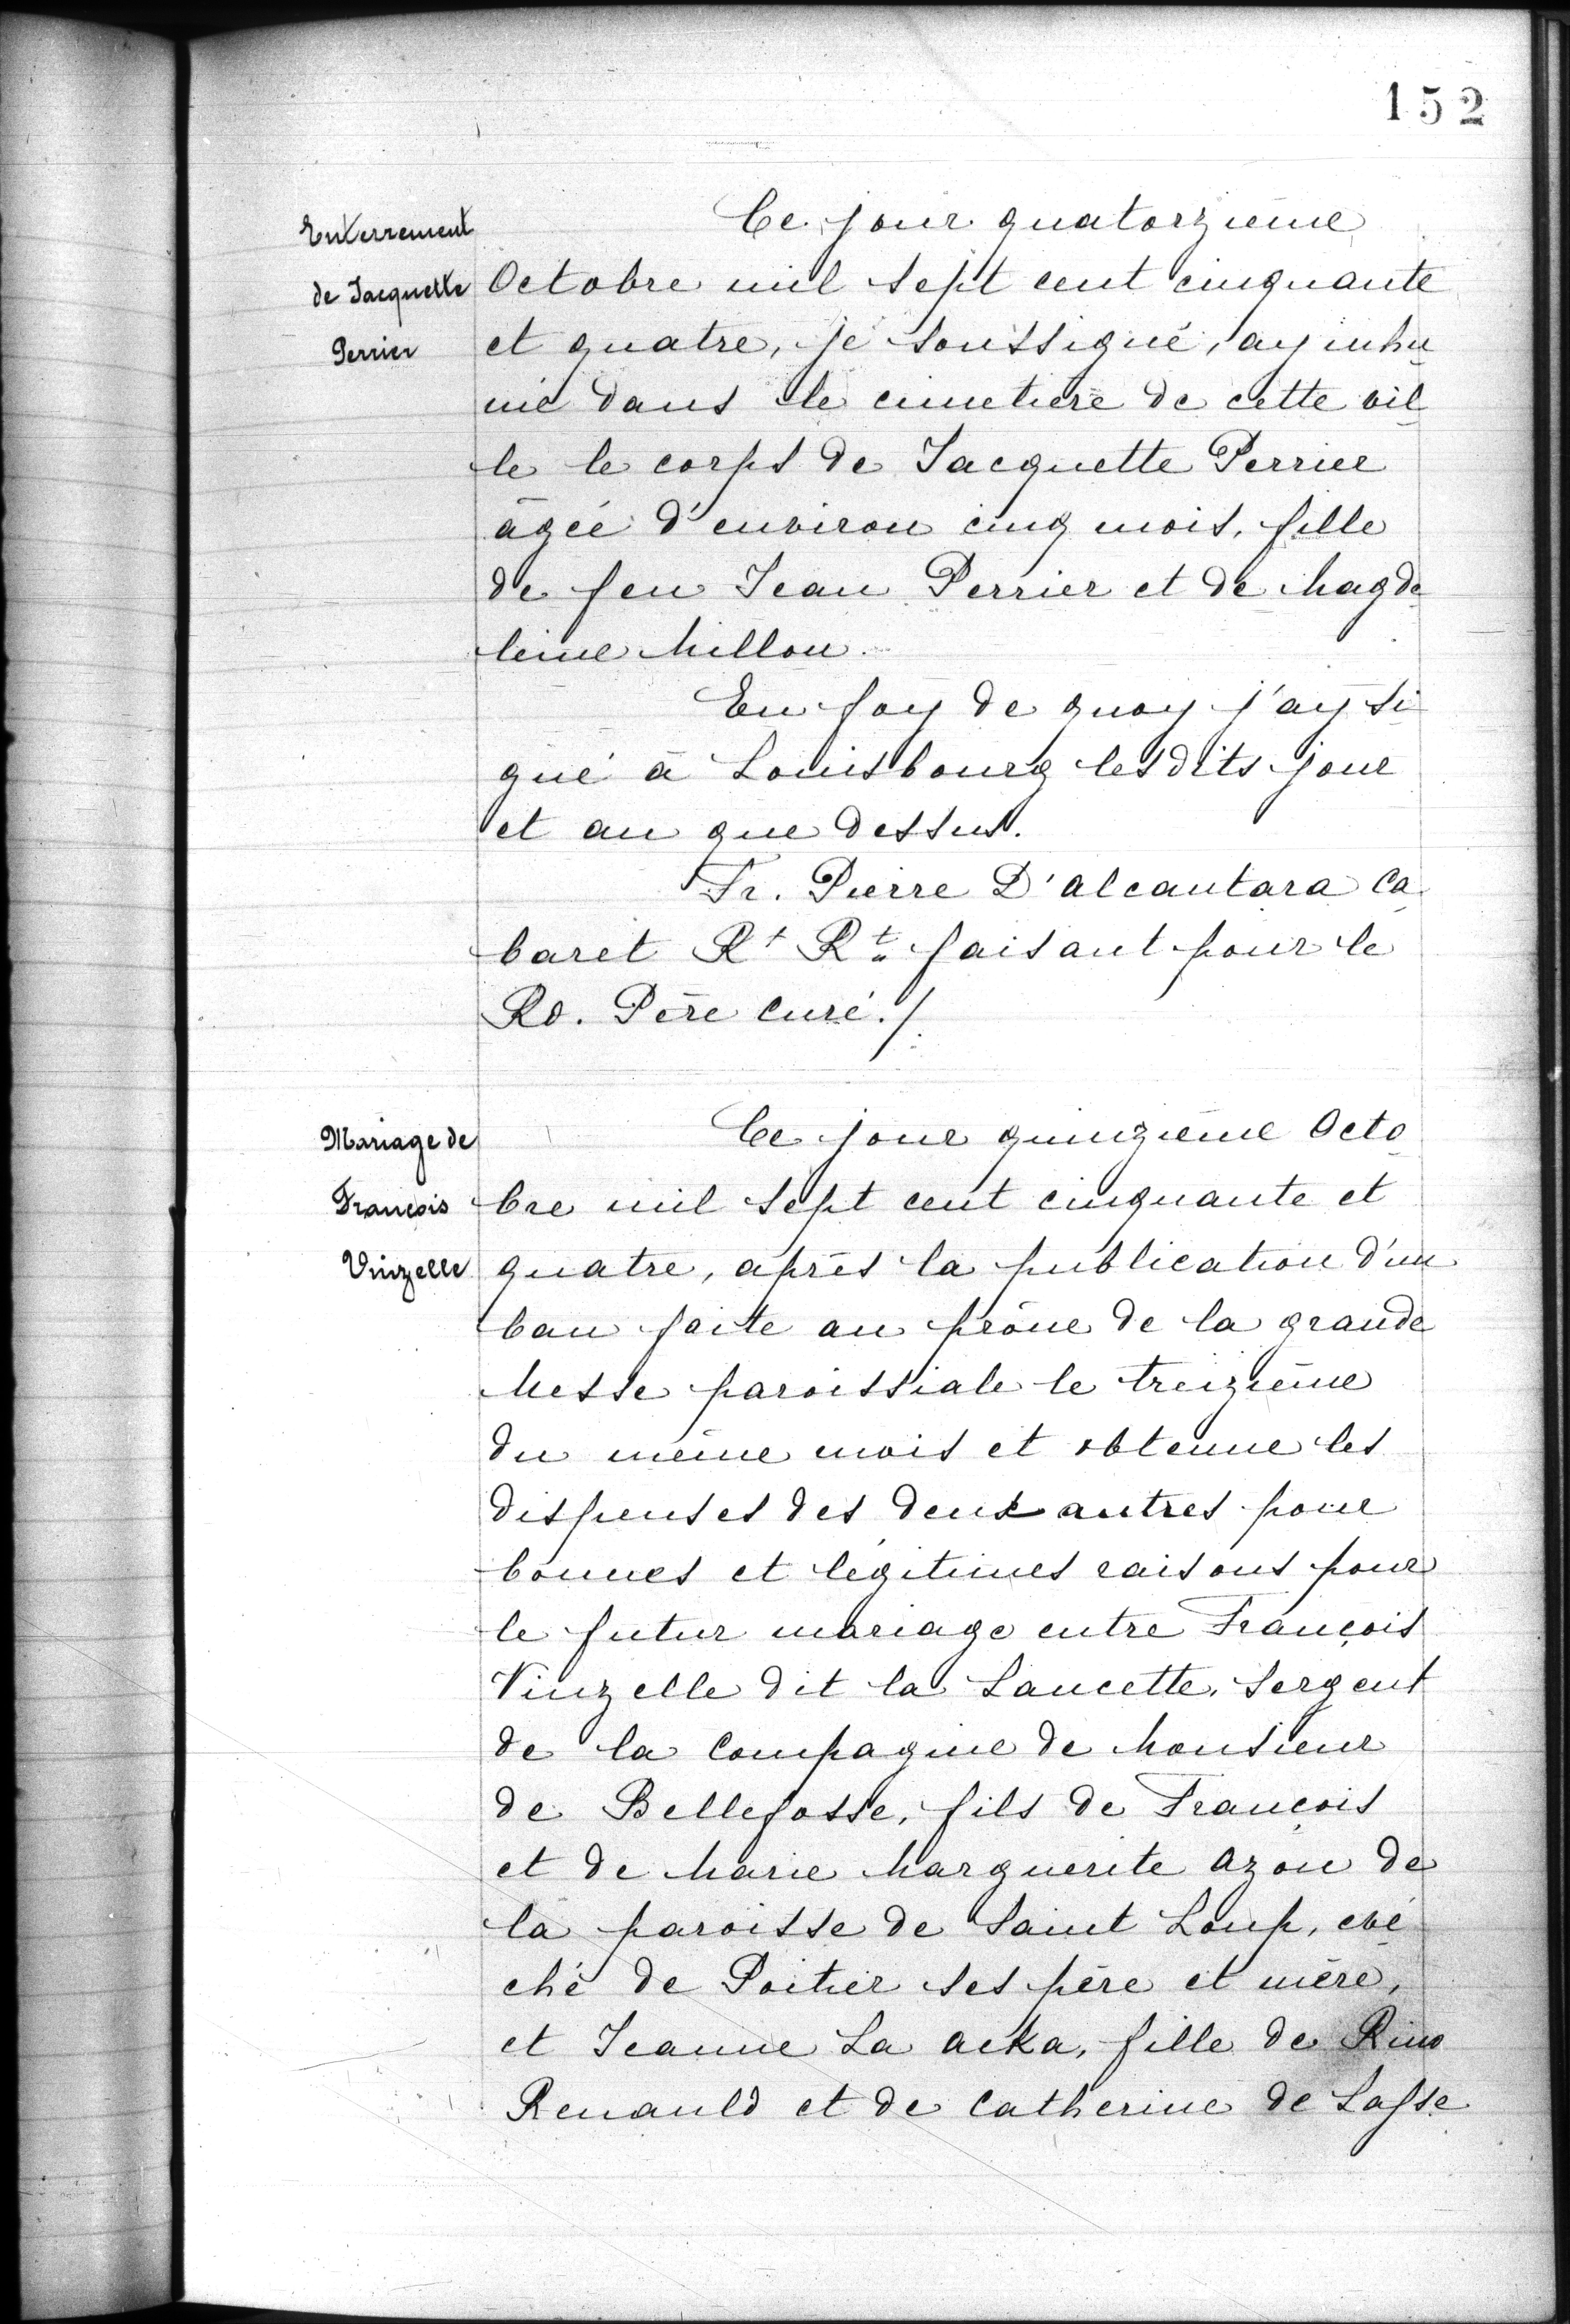 152
Enterrement
de Jacquette
Perrier
Ce jour quatorzième
Octobre mil sept cent cinquante
et quatre, je soussigné, ay inhu
mé dans le cimetière de cette vil
le le corps de Jacquette Perrier
âgée d'environ cinq mois, fille
de feu Jean Perrier et de Magde
leine Millou.
En foy de quoy j'ay si
gné à Louisbourg les dits jour
et an que dessus.
Fr. Pierre D'alcantara Ca
baret Rt Rt faisant pour le
Rd. Père Curé./.
Mariage de
François
Vinzelle
Ce jour quinzième Octo
bre mil sept cent cinquante et
quatre, après la publication d'un
ban faite au prône de la grande
Messe paroissiale le treizième
du même mois et obtenue les
dispenses des deux autres pour
bonnes et légitimes raisons pour
le futur mariage entre François
Vinzelle dit la Lancette, Sergent
de la Compagnie de Monsieur
de Bellefosse, fils de François
et de Marie Marguerite Azou de
la paroisse de Saint Loup, evé
ché de Poitier ses père et mère,
et Jeanne La acka, fille de
Renauld et de Catherine de Lasse